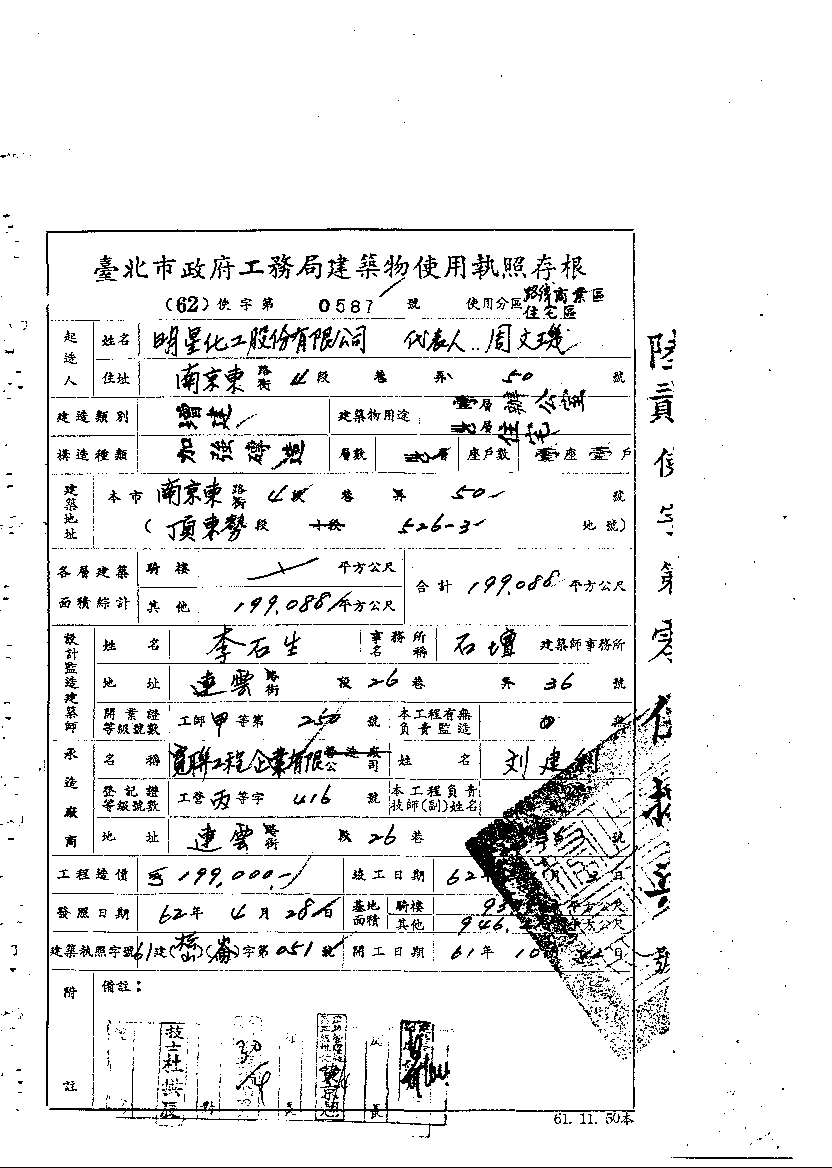 臺北市政府工務局建築物使用執照存根
(62) 使字第 0587 號 使用分區 路線商業區 住宅區
起造人 姓名 明星化工股份有限公司 代表人..周文璣
住址 南京東 路街 4 段 巷 弄 50 號
建造類別 增建 建築物用途 壹層辦公室 貳層住宅
構造種類 加強磚造 層數 貳層 座戶數 壹座壹戶
建築地址 本市 南京東 路街 4 段 巷 弄 50 號
(頂東勢 段 小段 526-3 地號)
各層建築面積綜計 騎樓 平方公尺 合計 199.088 平方公尺
其他 199.088 平方公尺
設計監造建築師 姓名 李石生 事務所名稱 石壇 建築師事務所
地址 連雲 路街 段 26 巷 弄 36 號
開業證等級號數 工師 甲 等第 250 號 本工程有無負責監造
承造廠商 名稱 寬聯工程企業有限公司 姓名 刘建
登記證等級號數 工營 丙 等字 416 號 本工程負責技師(副)姓名
地址 連雲 路街 段 26 巷 號
工程造價 199,000.- 竣工日期 62
發照日期 62年 4月 28日 基地面積 騎樓 平方公尺
其他 946. 平方公尺
建築執照字號 61建(松山)(崙)字第 051 號 開工日期 61年 10
附註 備註：
技士杜
長
61. 11. 50本